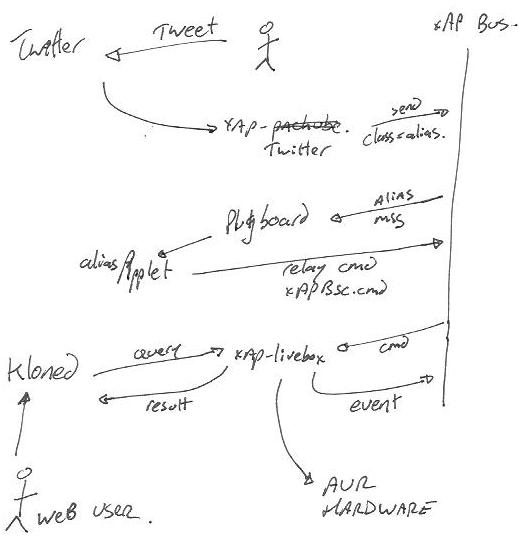 Tweet
xAP Bus.
Twitter
xAP-pachube.
Twitter
send
class=alias.
Alias
msg
Plugboard
alias/Applet
relay cmd
xAPBsc.cmd
query
xAP-livebox
cmd
Kloned
result
event
AVR
HARDWARE
WEB USER.